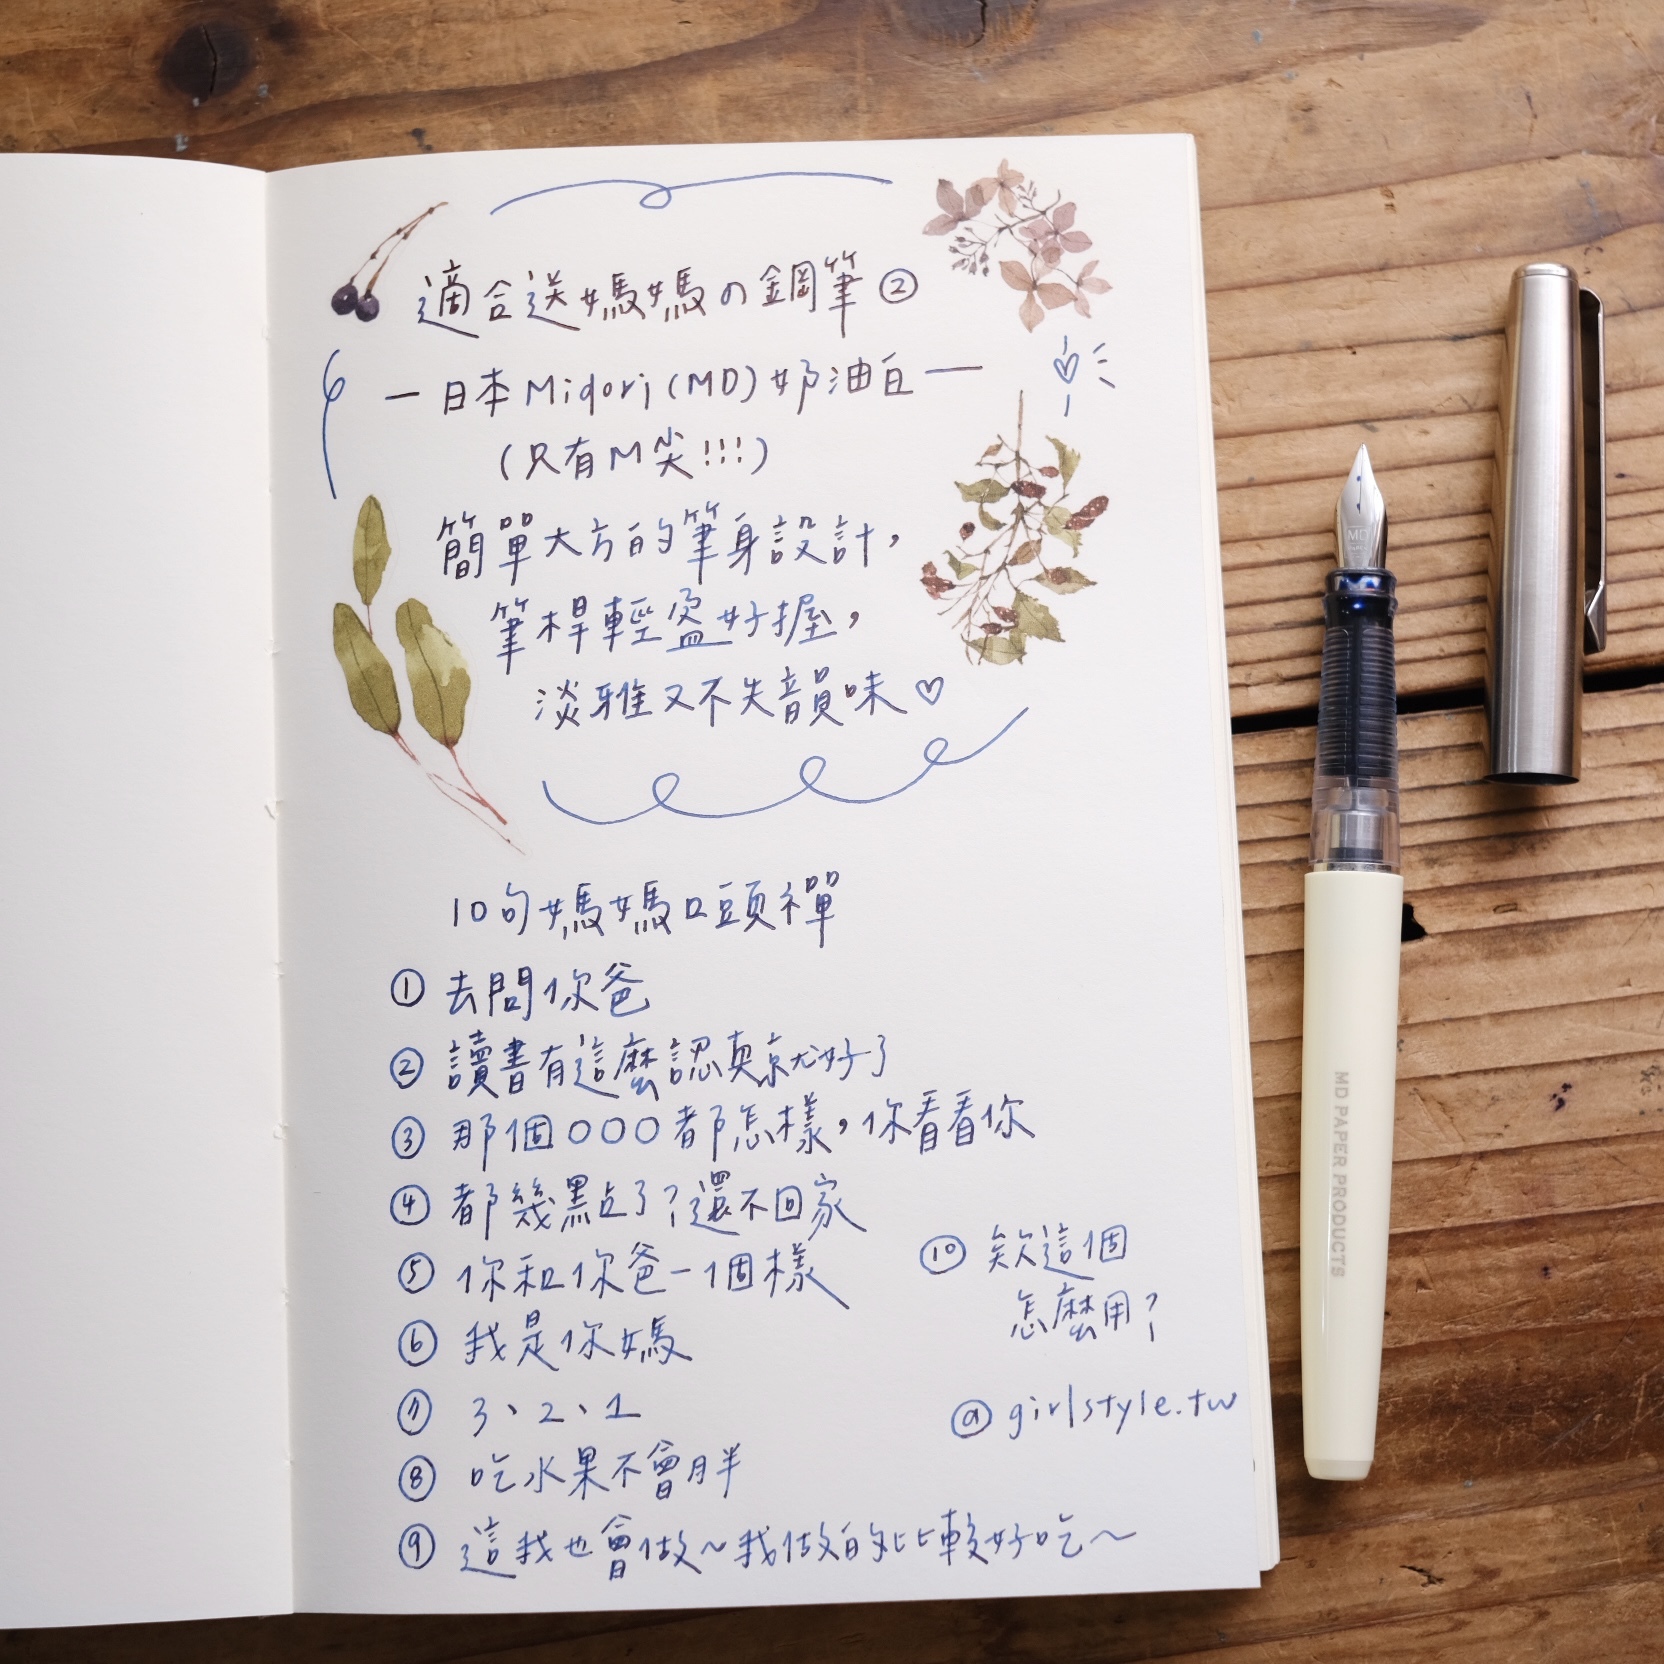 適合送媽媽の鋼筆②
—日本Midori(MD)奶油白—
(只有M尖!!!)
簡單大方的筆身設計，
筆桿輕盈好握，
淡雅又不失韻味♡
10句媽媽口頭禪
① 去問你爸
② 讀書有這麼認真就好了
③ 那個○○○都怎樣，你看看你
④ 都幾點了?還不回家
⑤ 你和你爸一個樣
⑥ 我是你媽
⑦ 3、2、1
⑧ 吃水果不會胖
⑨ 這我也會做~我做的比較好吃~
⑩ 欸這個
怎麼用?
@girlstyle.tw
MD
MD PAPER PRODUCTS